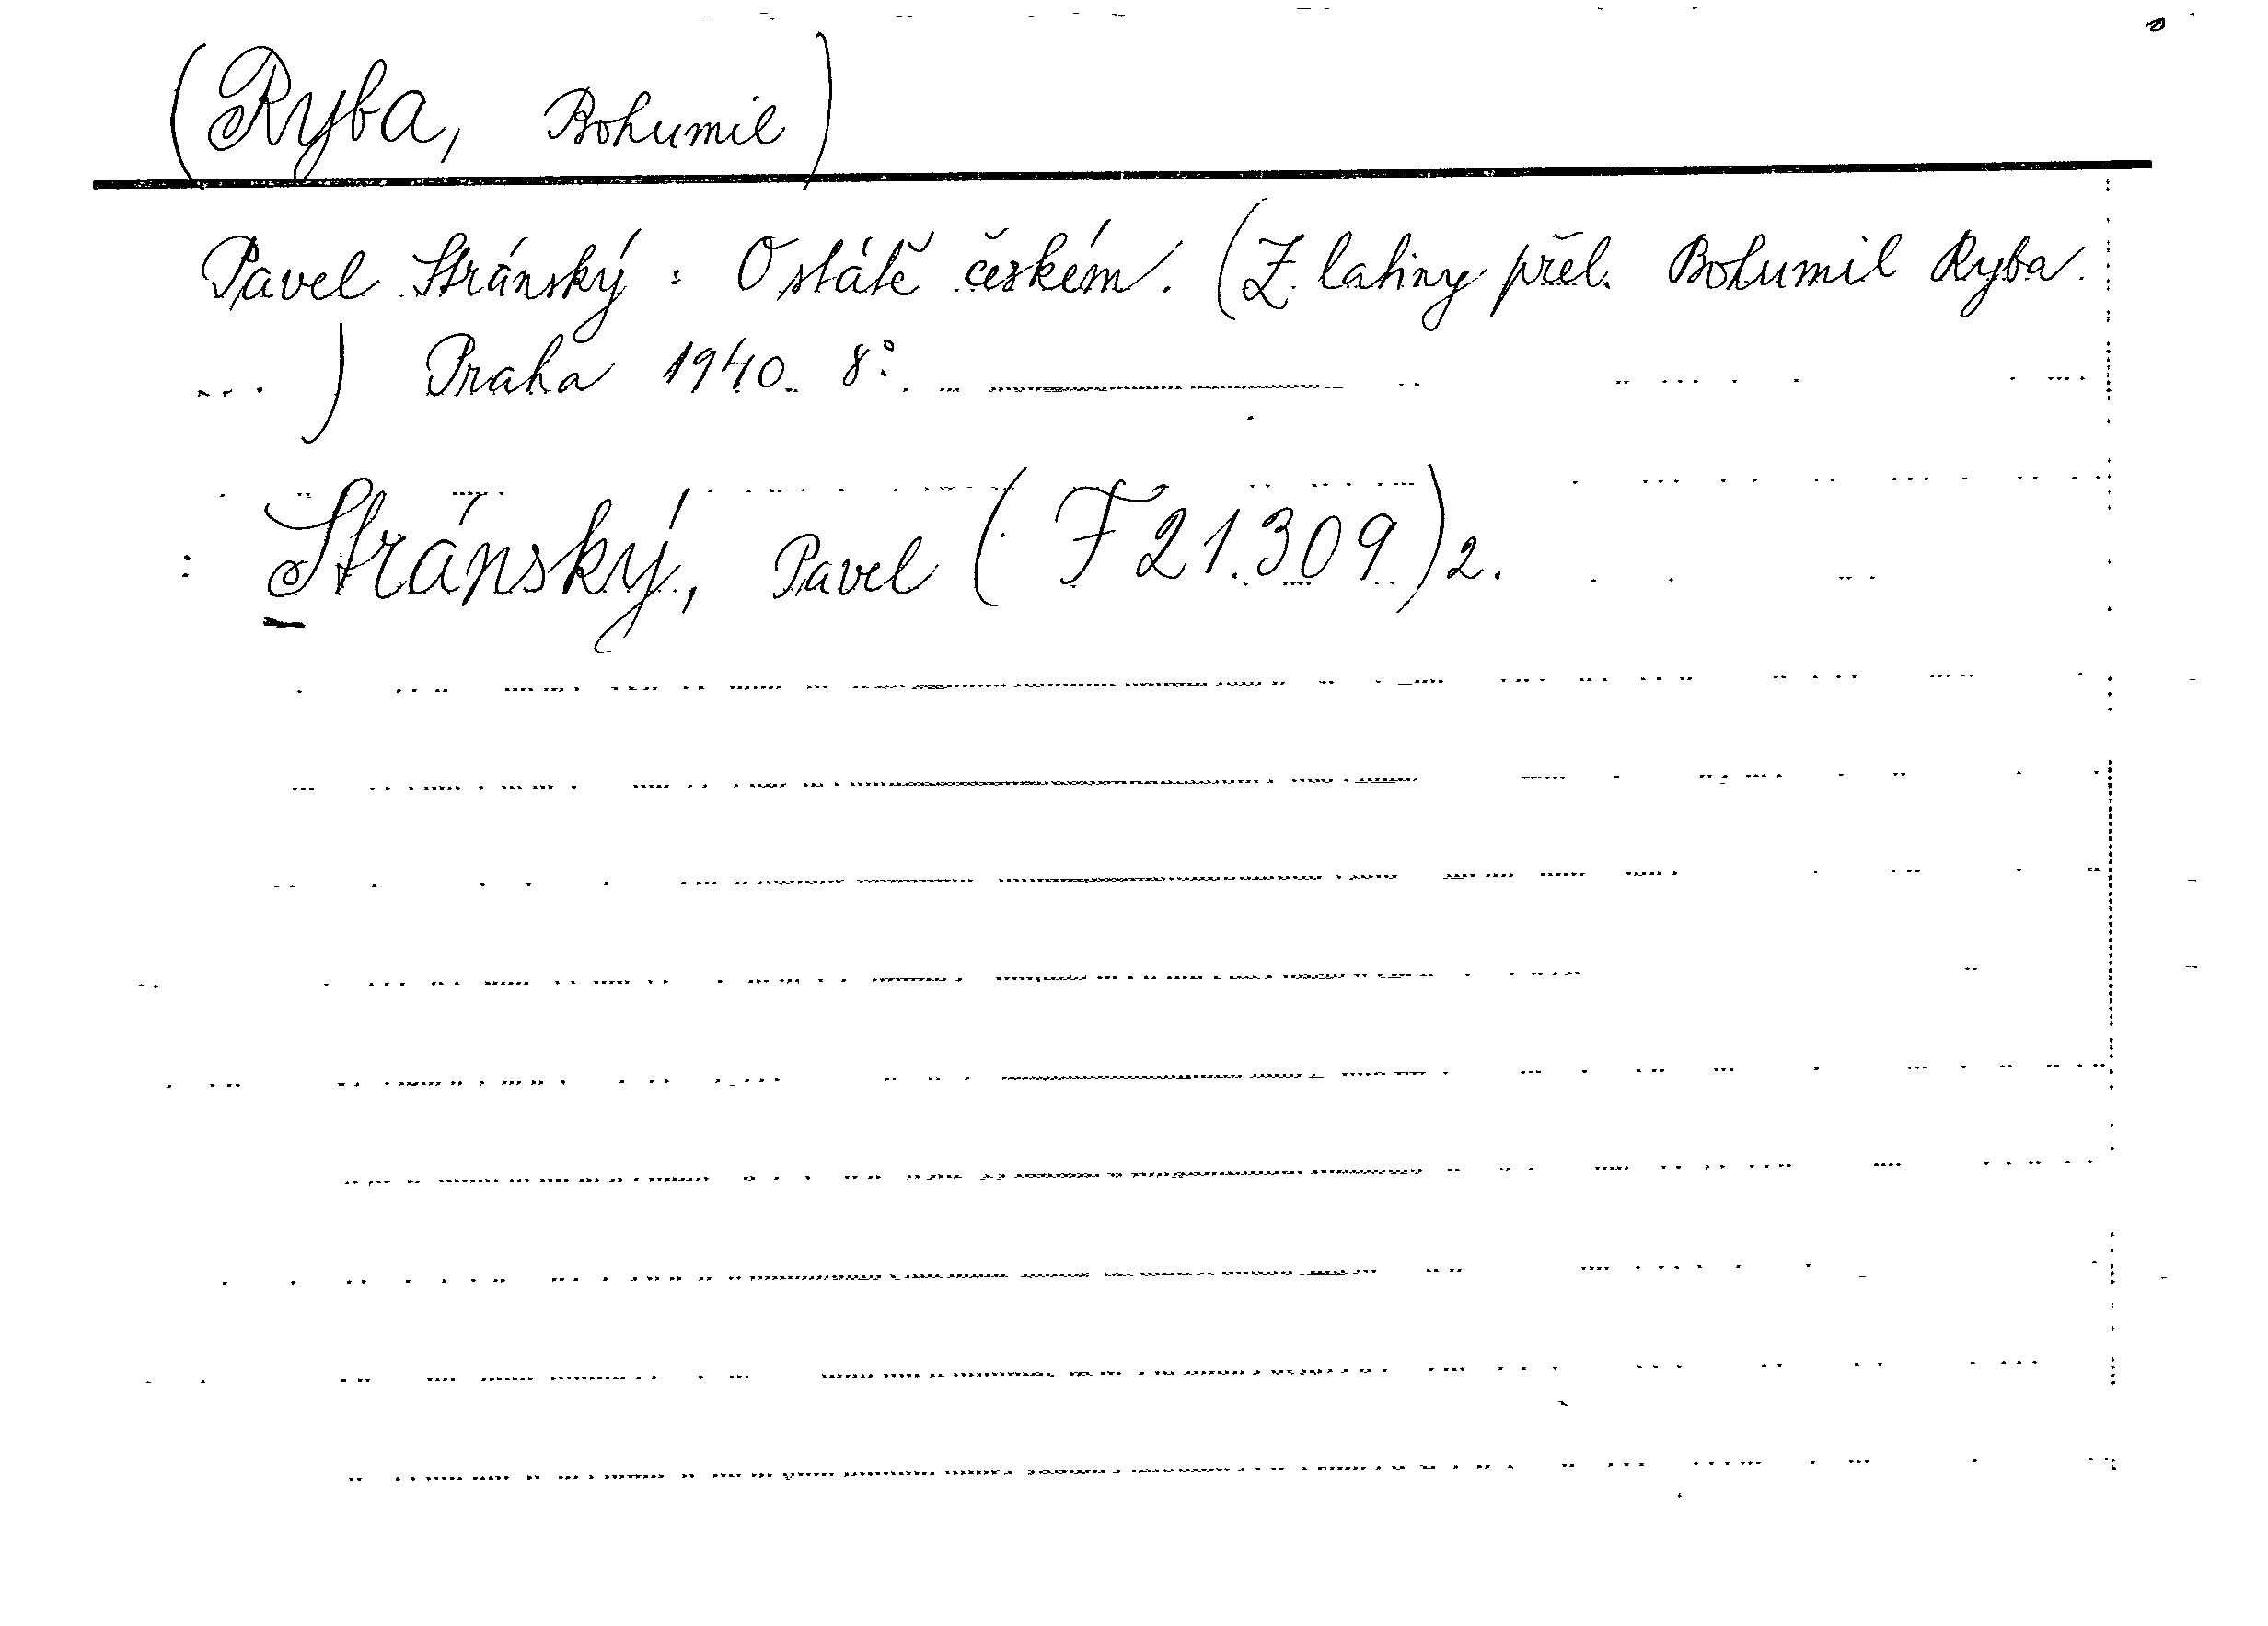 (Ryba, Bohumil)
Pavel Stránský : O státě českém. (Z latiny přel. Bohumil Ryba
...) Praha 1940. 8°.
: Stránský, Pavel (F 21.309) 2.